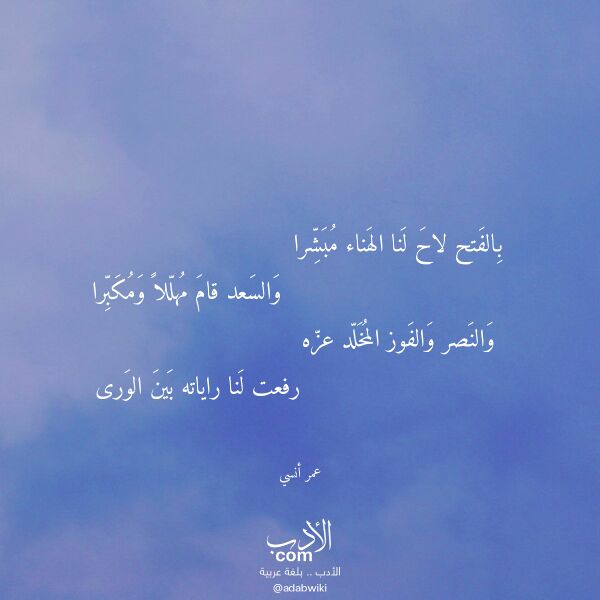 بِالفَتح لاحَ لَنا الهَناء مُبَشِّرا
وَالسَعد قامَ مُهلّلاً وَمُكَبِّرا
وَالنَصر وَالفَوز المُخَلّد عزّه
رفعت لَنا راياته بَينَ الوَرى
عمر أنسي
الأدب
com
الأدب .. بلغة عربية
@adabwiki